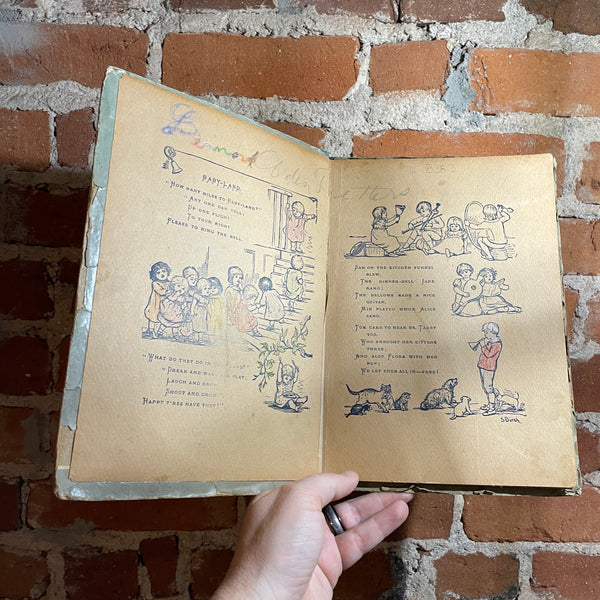 BABY-LAND.
"How many miles to Baby-land?"
"Any one can tell;
Up one flight,
To your right;
Please to ring the bell."
"What do they do in
"Dream and wake and play;
Laugh and crow,
Shout and grow;
Happy times have they!"
Dan on the kitchen funnel
blew,
The dinner-bell Jane
rang;
The bellows made a nice
guitar,
Min played while Alice
sang.
Tom came to hear us, Tabby
too,
Who brought her kittens
three;
And also Flora with her
pup;
We let them all in—free!
S. Birch